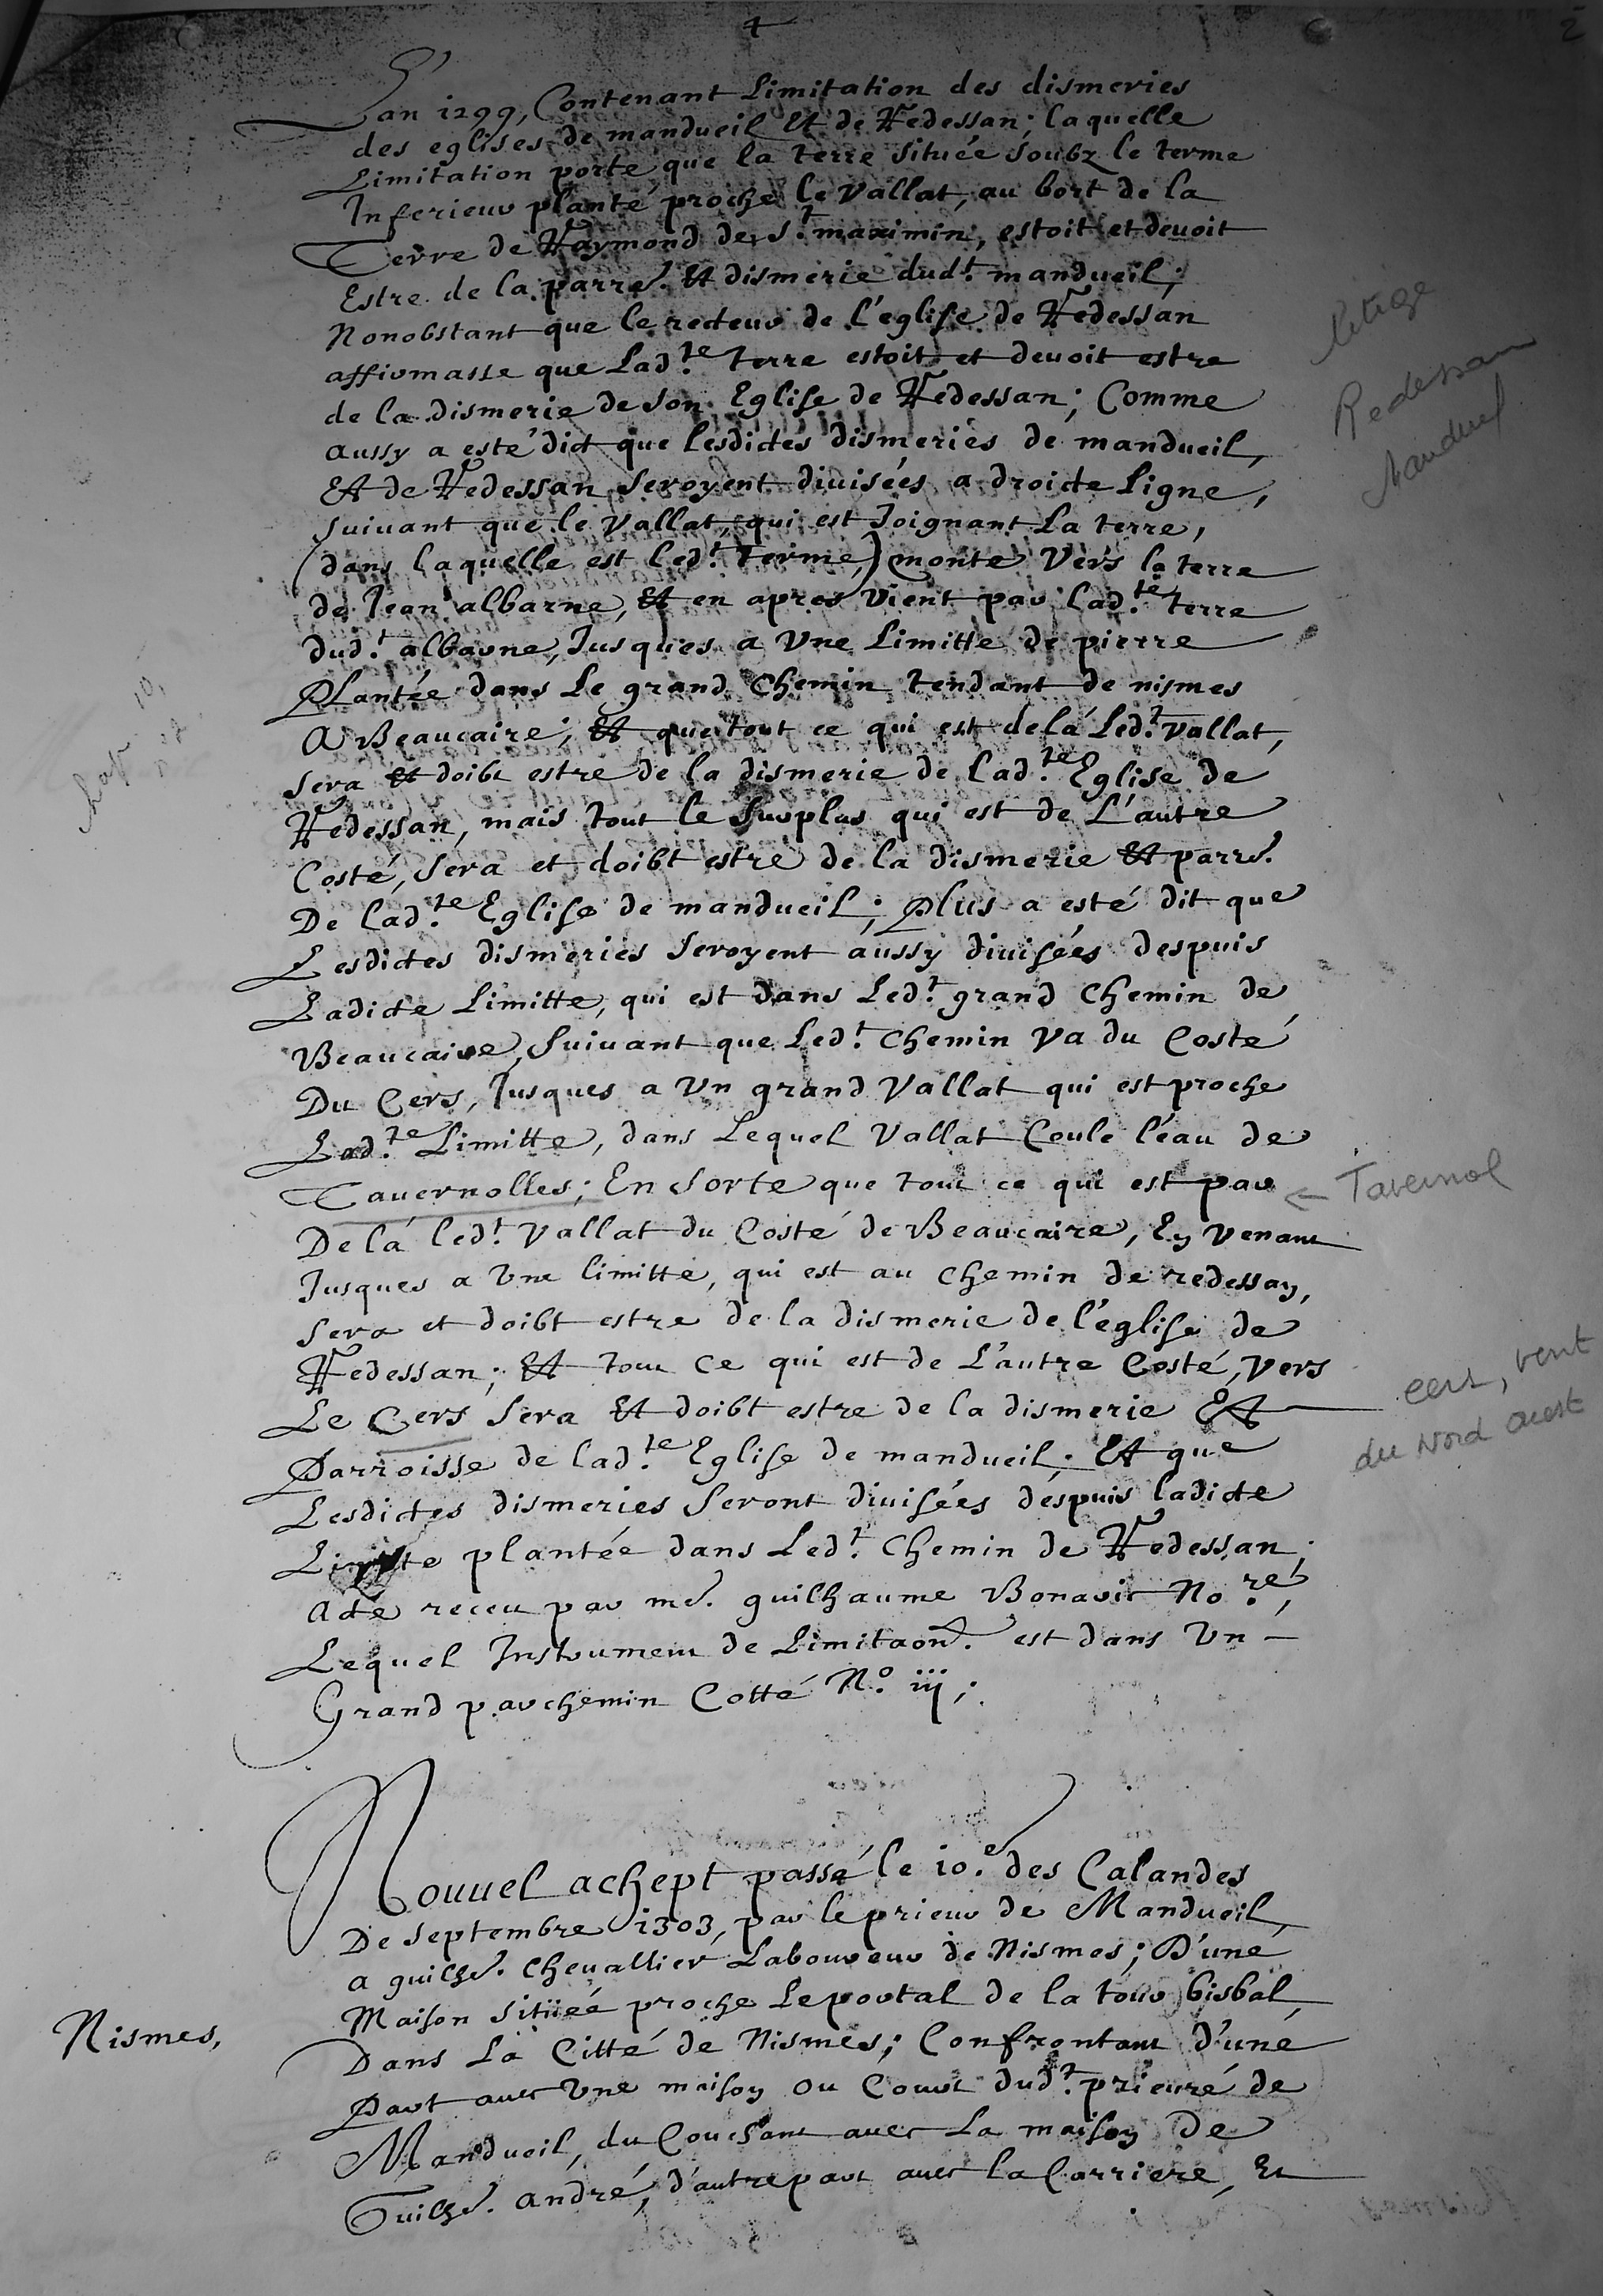 L'an 1299, Contenant Limitation des dismeries
des eglises de mandueil Et de Redessan; laquelle
Limitation porte que la terre située soubz le terme
Inferieur planté proche le vallat, au bort de la
Terre de Raymond de St. maximin, estoit et devoit
Estre de la parre. Et dismerie dudt. mandueil;
Nonobstant que le recteur de l'eglise de Redessan
affirmasse que Ladte. terre estoit et devoit estre
de la dismerie de son Eglise de Redessan; Comme
aussy a esté dict que lesdictes dismeries de mandueil,
Et de Redessan seroyent divisées a droicte Ligne,
suivant que le vallat, qui est Joignant La terre,
(dans laquelle est ledt. Terme,) monte Vers la terre
de Jean albarne, Et en apres vient par ladte. terre
dudt. albarne, Jusques a Une Limitte de pierre
Plantée dans Le grand Chemin tendant de nismes
A Beaucaire; Et que tout ce qui est delá Ledt. vallat,
sera Et doibt estre de la dismerie de Ladte. Eglise de
Redessan, mais tout le surplus qui est de L'autre
Costé, sera et doibt estre de la dismerie Et parre.
De ladte. Eglise de mandueil; Plus a esté dit que
Lesdictes dismeries seroyent aussy divisées despuis
Ladicte Limitte, qui est dans Ledt. grand Chemin de
Beaucaire, suivant que Ledt. Chemin Va du Costé
Du Cers, Jusques a Un grand Vallat qui est proche
Ladte. Limitte, dans Lequel Vallat Coule l'eau de
Tavernolles; En sorte que tout ce qui est par
De lá ledt. Vallat du Costé de Beaucaire, En Venant
Jusques a Une limitte, qui est au Chemin de redessan,
sera et doibt estre de la dismerie de l'église de
Redessan; Et tout ce qui est de L'autre Costé, Vers
Le Cers sera Et doibt estre de la dismerie Et
Parroisse de ladte. Eglise de mandueil; Et que
Lesdictes dismeries seront divisées despuis ladicte
Limitte plantée dans Ledt. Chemin de Redessan;
Acte receu par me. guilhaume Bonavit No.re,
Lequel Instrument de Limitaon. est dans Un
Grand parchemin Cotté N.o iij;
Nouuel achept passé le 10.e des Calandes
De septembre 1303, par le prieur de Mandueil,
a guilhe. Chevallier Laboureur de Nismes; D'une
Maison sitüée proche Le portal de la tour bisbal,
Dans La Citté de Nismes; Confrontant d'une
Part avec Une maison ou Court dudt. prieuré de
Mandueil, du Couchant avec La maison De
Guilhe. André, d'autre part avec la Carriere, Et
Nismes,
litige
Redessan
Manduel
← Tavernol
cers, vent
du Nord ouest